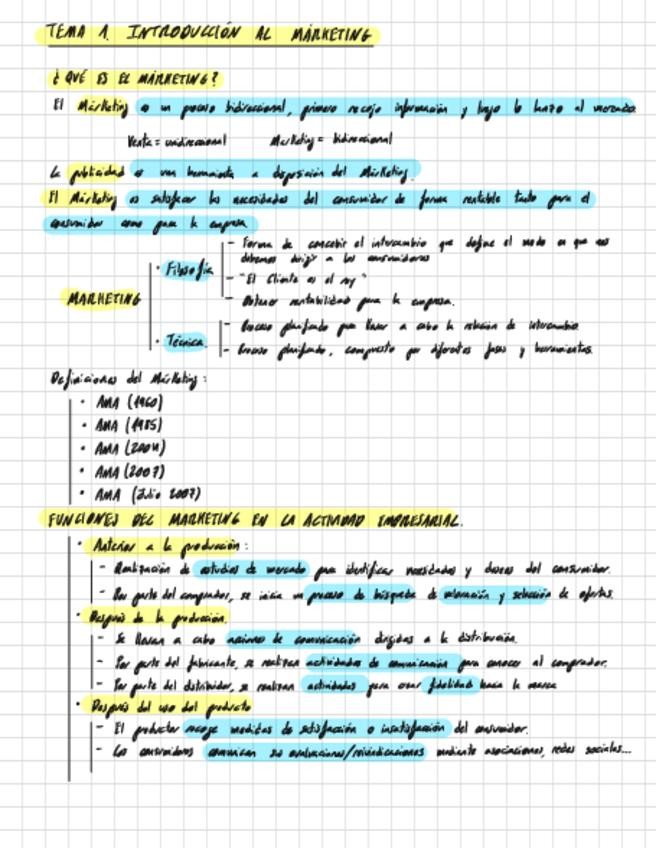 TEMA 1. INTRODUCCIÓN AL MÁRKETING
¿QUÉ ES EL MÁRKETING?
El Márketing es un proceso bidireccional, primero recojo información y luego lo lanzo al mercado.
Venta = unidireccional Marketing = bidireccional
La publicidad es una herramienta a disposición del Márketing.
El Márketing es satisfacer las necesidades del consumidor de forma rentable tanto para el
consumidor como para la empresa
MARKETING
· Filosofía
- Forma de concebir el intercambio que define el modo en que nos
debemos dirigir a los consumidores
- "El cliente es el rey"
- Obtener rentabilidad para la empresa.
· Técnica.
- Proceso planificado para llevar a cabo la relación de intercambio.
- Proceso planificado, compuesto por diferentes fases y herramientas.
Definiciones del Márketing:
· AMA (1960)
· AMA (1985)
· AMA (2004)
· AMA (2007)
· AMA (Julio 2007)
FUNCIONES DEL MARKETING EN LA ACTIVIDAD EMPRESARIAL.
· Anterior a la producción:
- Realización de estudios de mercado para identificar necesidades y deseos del consumidor.
- Por parte del comprador, se inicia un proceso de búsqueda de valoración y selección de ofertas.
· Después de la producción.
- Se llevan a cabo acciones de comunicación dirigidas a la distribución.
- Por parte del fabricante, se realizan actividades de comunicación para conocer al comprador.
- Por parte del distribuidor, se realizan actividades para crear fidelidad hacia la marca
· Después del uso del producto
- El productor recoge medidas de satisfacción o insatisfacción del consumidor.
- Los consumidores comunican sus evaluaciones/reivindicaciones mediante asociaciones, redes sociales...